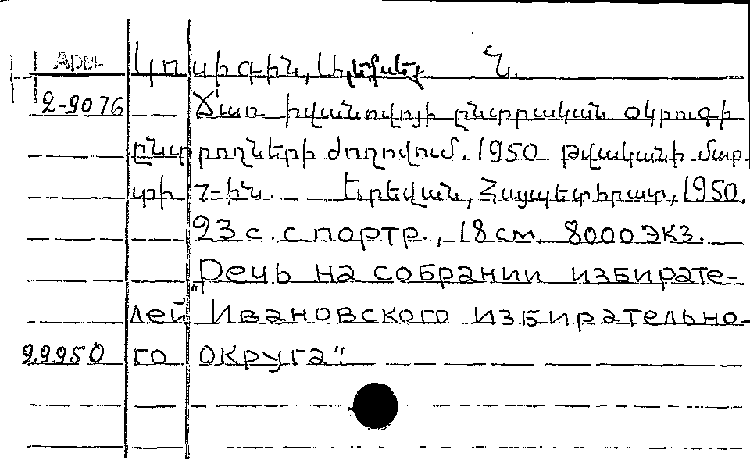 Կոսիգին, Ալեքսեյ Ն.
2-9076 Ճառ Իվանովոյի ընտրական օկրուգի
ընտրողների ժողովում. 1950 թվականի մար-
տի 7-ին. Երևան, Հայպետհրատ, 1950.
23 с. с портр., 18 см. 8000 экз.
„Речь на собрании избирате-
лей Ивановского избирательно-
99950 го округа“